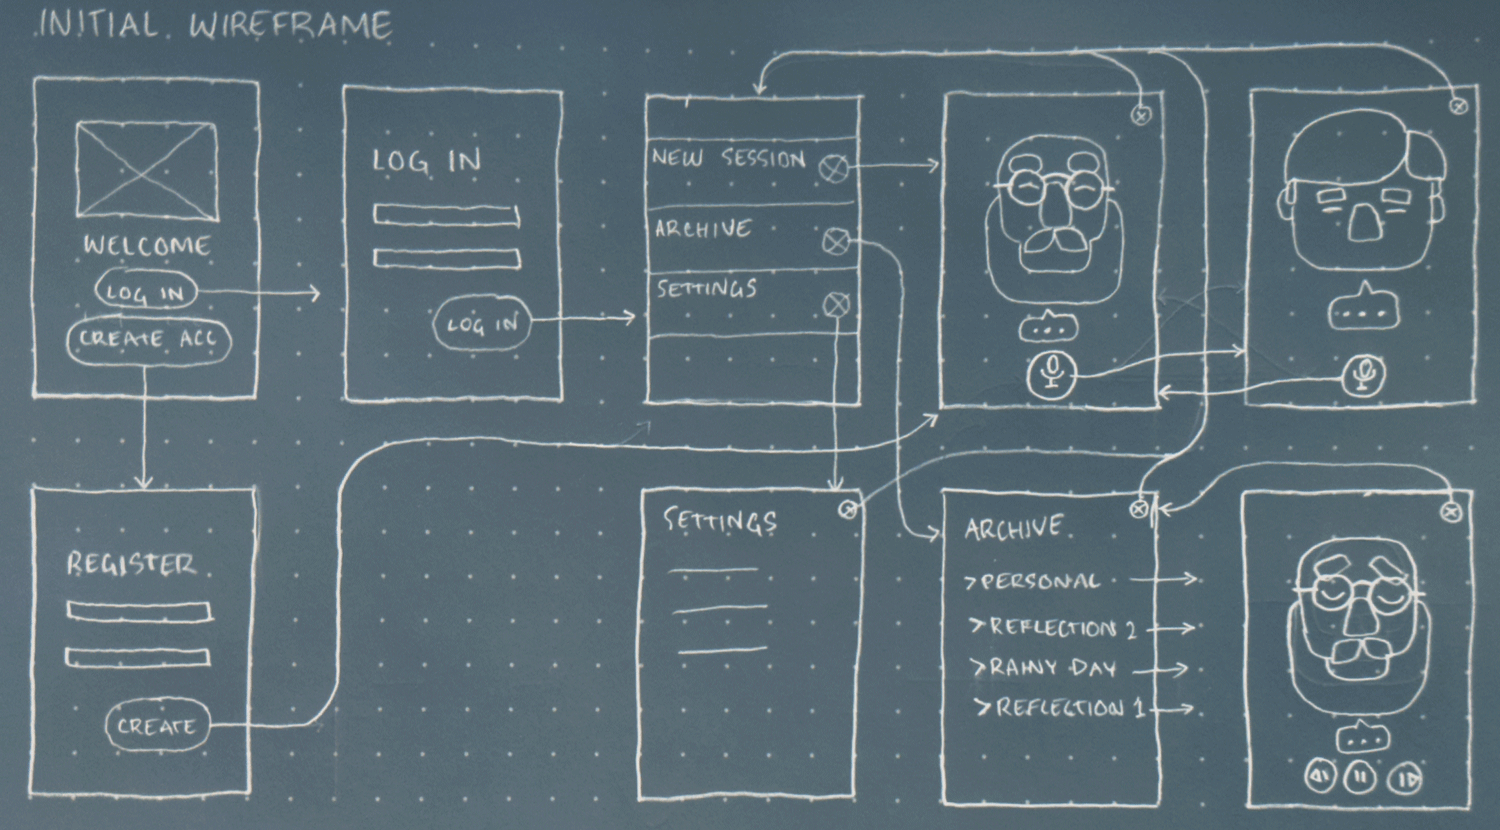 INITIAL WIREFRAME
WELCOME
LOG IN
CREATE ACC
LOG IN
LOG IN
NEW SESSION
ARCHIVE
SETTINGS
REGISTER
CREATE
SETTINGS
ARCHIVE
>PERSONAL
>REFLECTION 2
>RAINY DAY
>REFLECTION 1